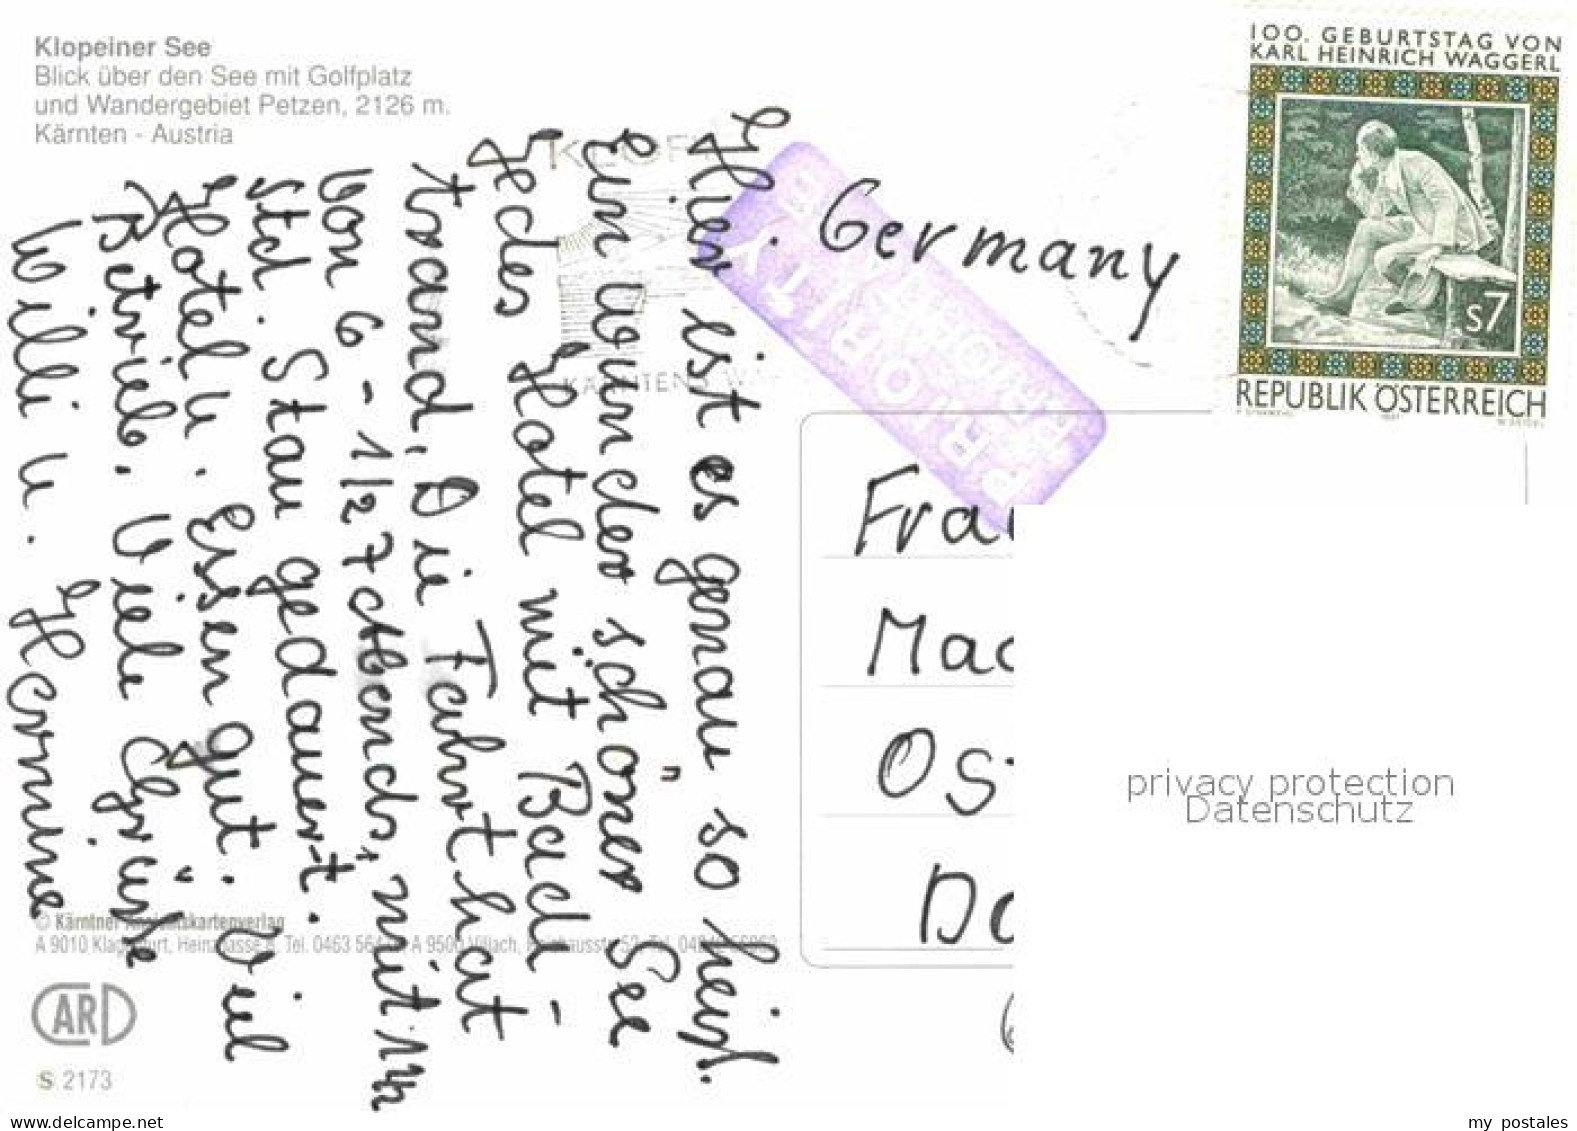 Klopeiner See
Blick über den See mit Golfplatz
und Wandergebiet Petzen, 2126 m.
Kärnten - Austria
100. GEBURTSTAG VON
KARL HEINRICH WAGGERL
S7
REPUBLIK ÖSTERREICH
PRIORITY
Germany
Hier ist es genau so heiß.
Ein wunder schöner See
Jedes Hotel mit Bade-
trand, Die Fahrt hat
von 6 - 1/2 7 Abends, mit 1½
Std. Stau gedauert.
Hotel u. Essen gut. Viel
Betrieb. Viele Grüße
Willi u. Hermine
Fra
Mad
Os
Do
privacy protection
Datenschutz
© Kärntner Ansichtskartenverlag
A 9010 Klagenfurt, Heinzgasse 8, Tel. 0463 56 A 9500 Villach,
CARD
S 2173
www.delcampe.net
my postales